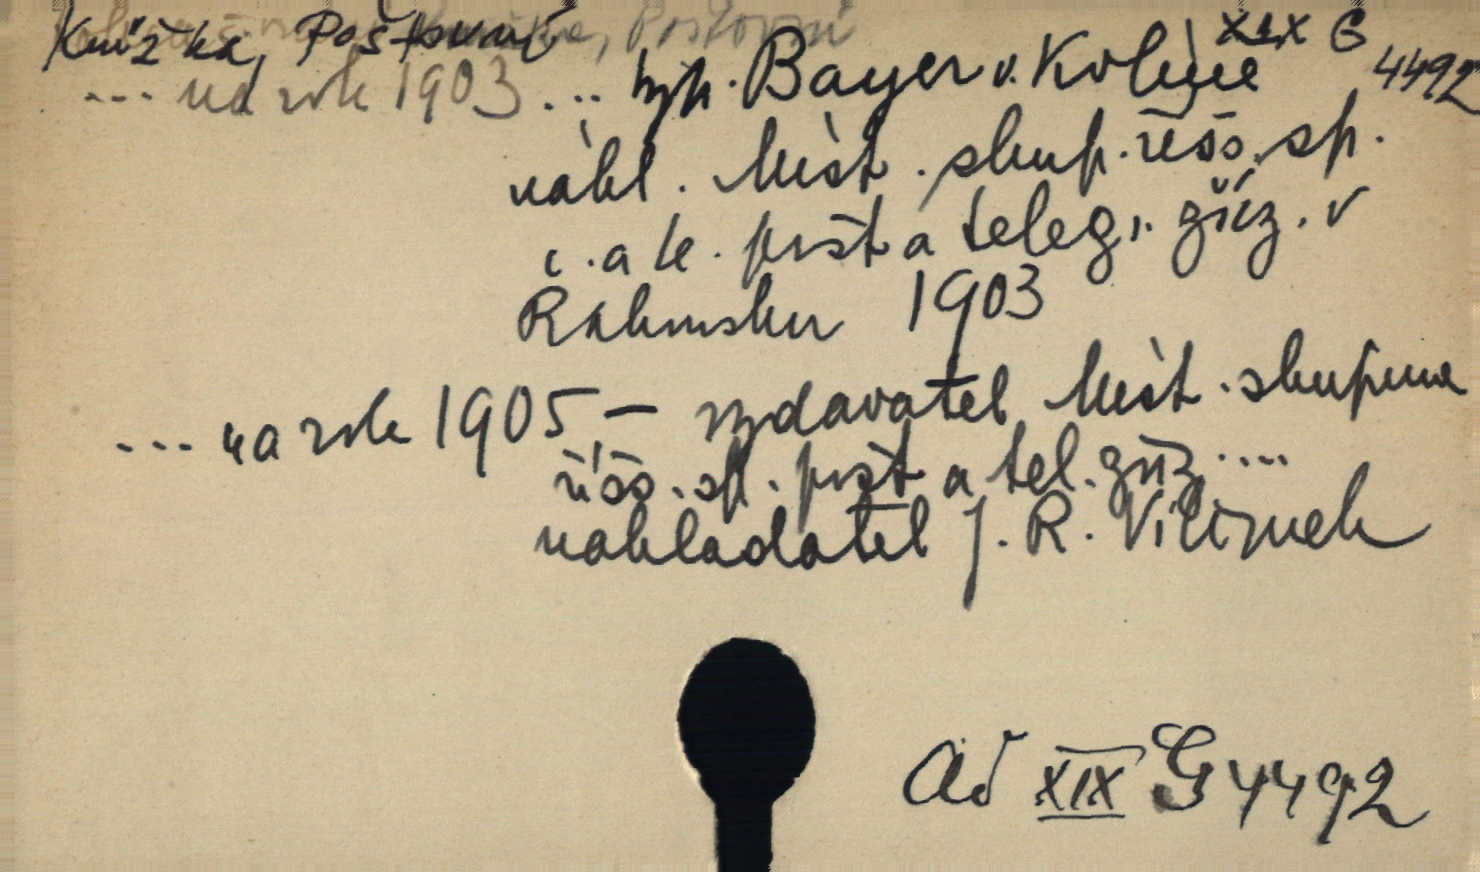 Knížka, Poštovní XIX G 4492
... na rok 1903 ... typ. Bayer v. Kolíně
nákl. Míst. skup. říšs. sp.
č. a k. pošt a telegr. zříz. v
Rakousku 1903
... na rok 1905 — vydavatel Míst. skupina
říšs. sp. pošt a tel. zříz. ....
nakladatel J. R. Vilímek
Ad XIX G 4492